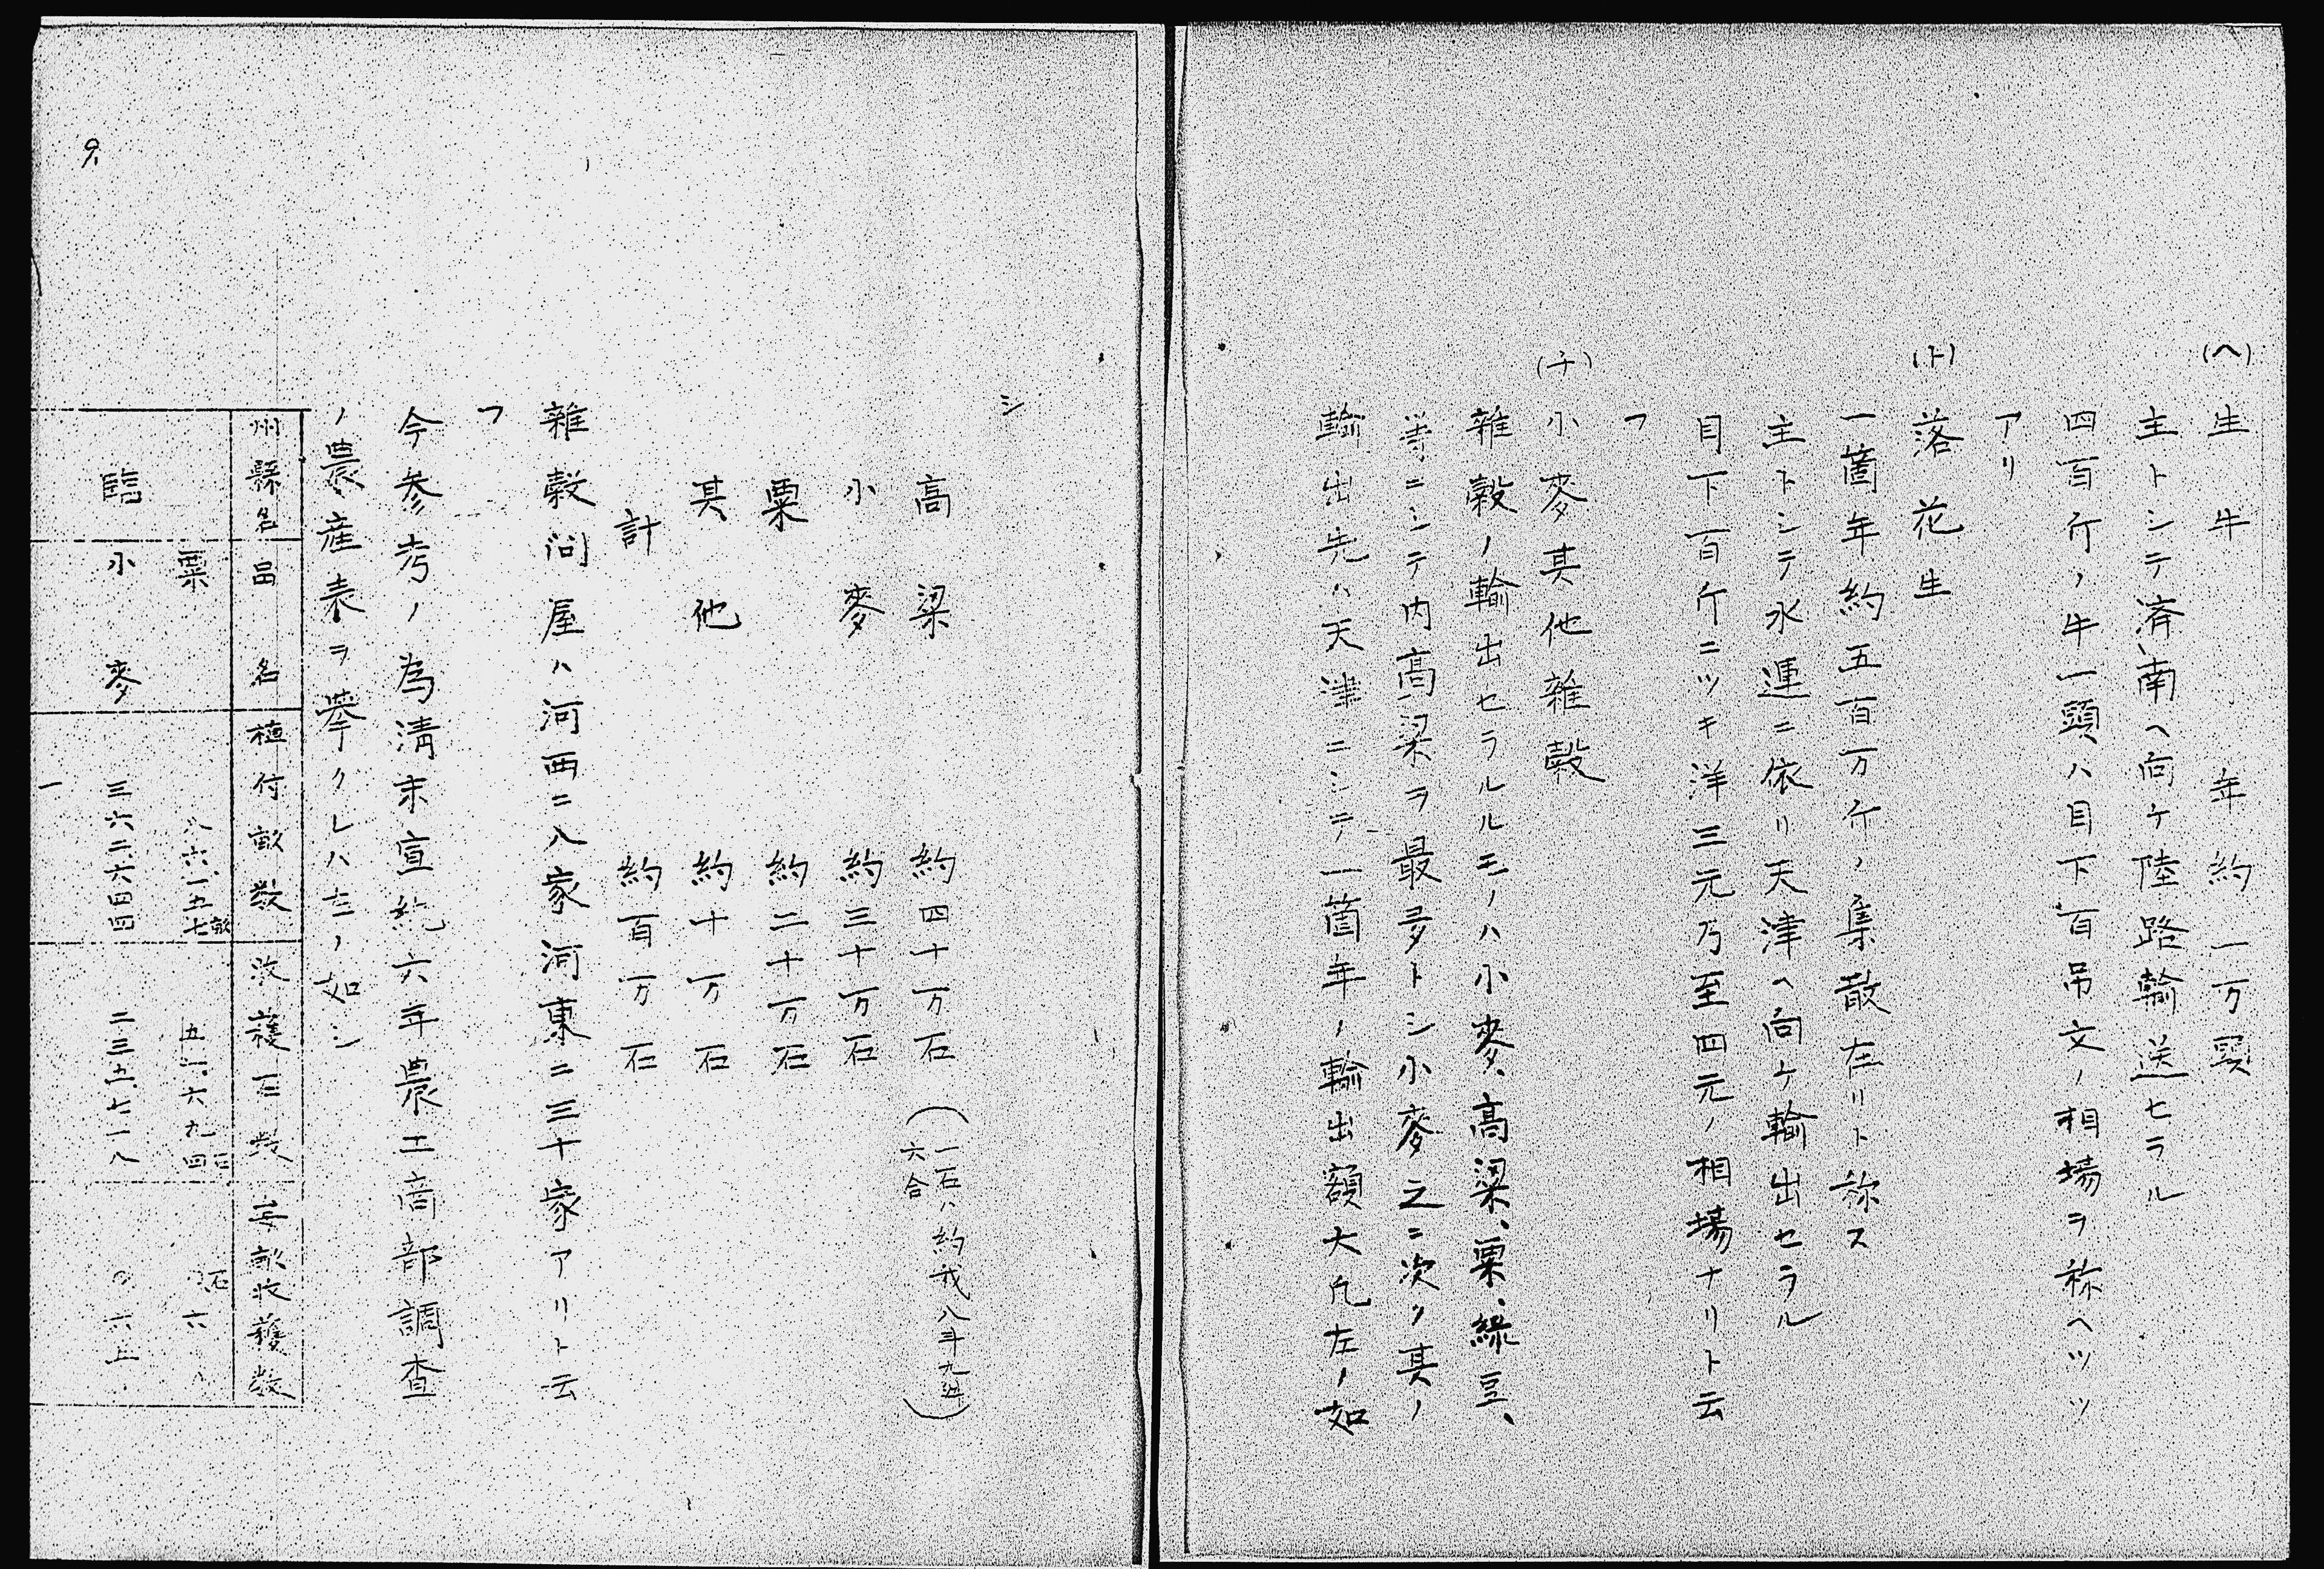 (ヘ) 生牛 年約一万頭
主トシテ済南ヘ向ケ陸路輸送セラル
四百斤ノ牛一頭ハ目下百吊文ノ相場ヲ称ヘツツ
アリ
(ト) 落花生
一箇年約五百万斤ノ集散在リト称ス
主トシテ水運ニ依リ天津ヘ向ケ輸出セラル
目下百斤ニツキ洋三元乃至四元ノ相場ナリト云
フ
(チ) 小麥其他雑穀
雑穀ノ輸出セラルルモノハ小麥、高粱、粟、緑豆、
等ニシテ内高粱ヲ最多トシ小麥之ニ次ク其ノ
輸出先ハ天津ニシテ一箇年ノ輸出額大凡左ノ如
シ
高粱 約四十万石 (一石ハ約我八斗九升六合)
小麥 約三十万石
粟 約二十万石
其他 約十万石
計 約百万石
雑穀問屋ハ河西ニ八家河東ニ三十家アリト云
フ
今参考ノ為清末宣統六年農工商部調査
ノ農産表ヲ挙クレハ左ノ如シ
州縣名 品名 植付畝数 收穫石数 毎畝收穫数
粟 八六一五七畝 六九四石 石六
臨 小麥 三六二六四四 二三五七一八 〇六五
一
9.